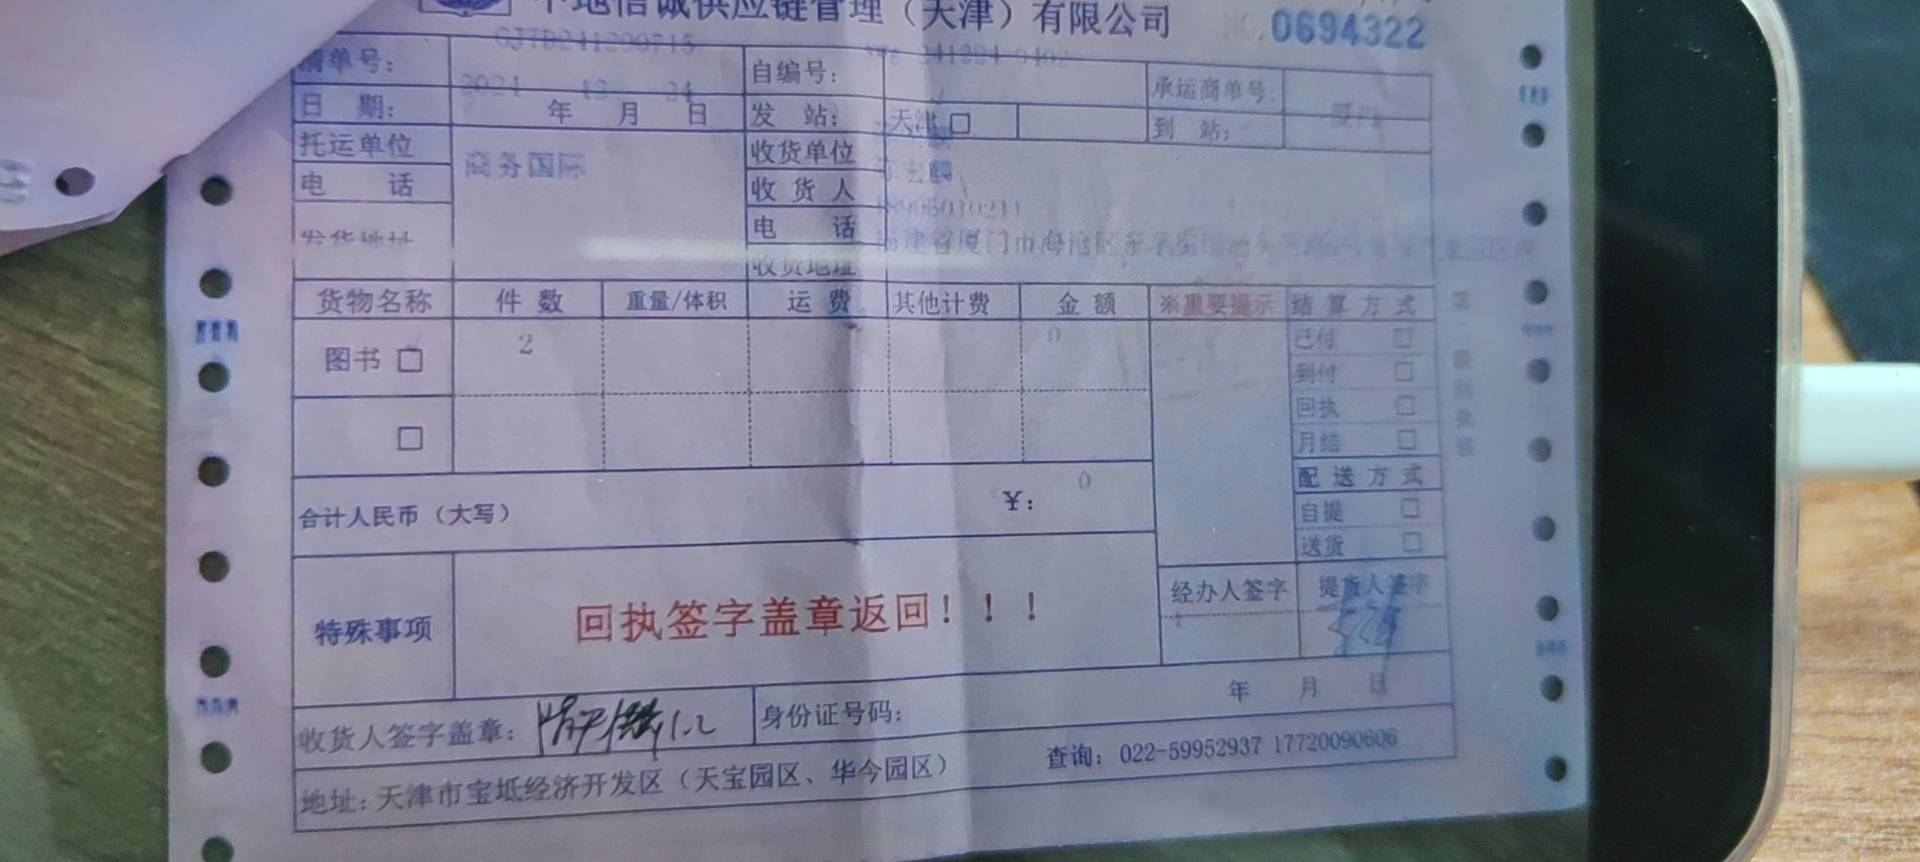 中地信诚供应链管理（天津）有限公司 NO.0694322
清单号： 自编号： 承运商单号：
日 期： 2024 年 12 月 24 日 发 站： 天津 □ 到 站： 厦门
托运单位 商务国际 收货单位
电 话 收 货 人
电 话
发货地址 收货地址
货物名称 件 数 重量/体积 运 费 其他计费 金 额 ※重要提示 结 算 方 式
图书 □ 2 0 已付 □
到付 □
□ 回执 □
月结 □
合计人民币（大写） ￥： 0 配 送 方 式
自提 □
送货 □
特殊事项 回执签字盖章返回！！！ 经办人签字 提货人签字
年 月 日
收货人签字盖章： 1.2 身份证号码：
地址：天津市宝坻经济开发区（天宝园区、华今园区） 查询：022-59952937 17720090606